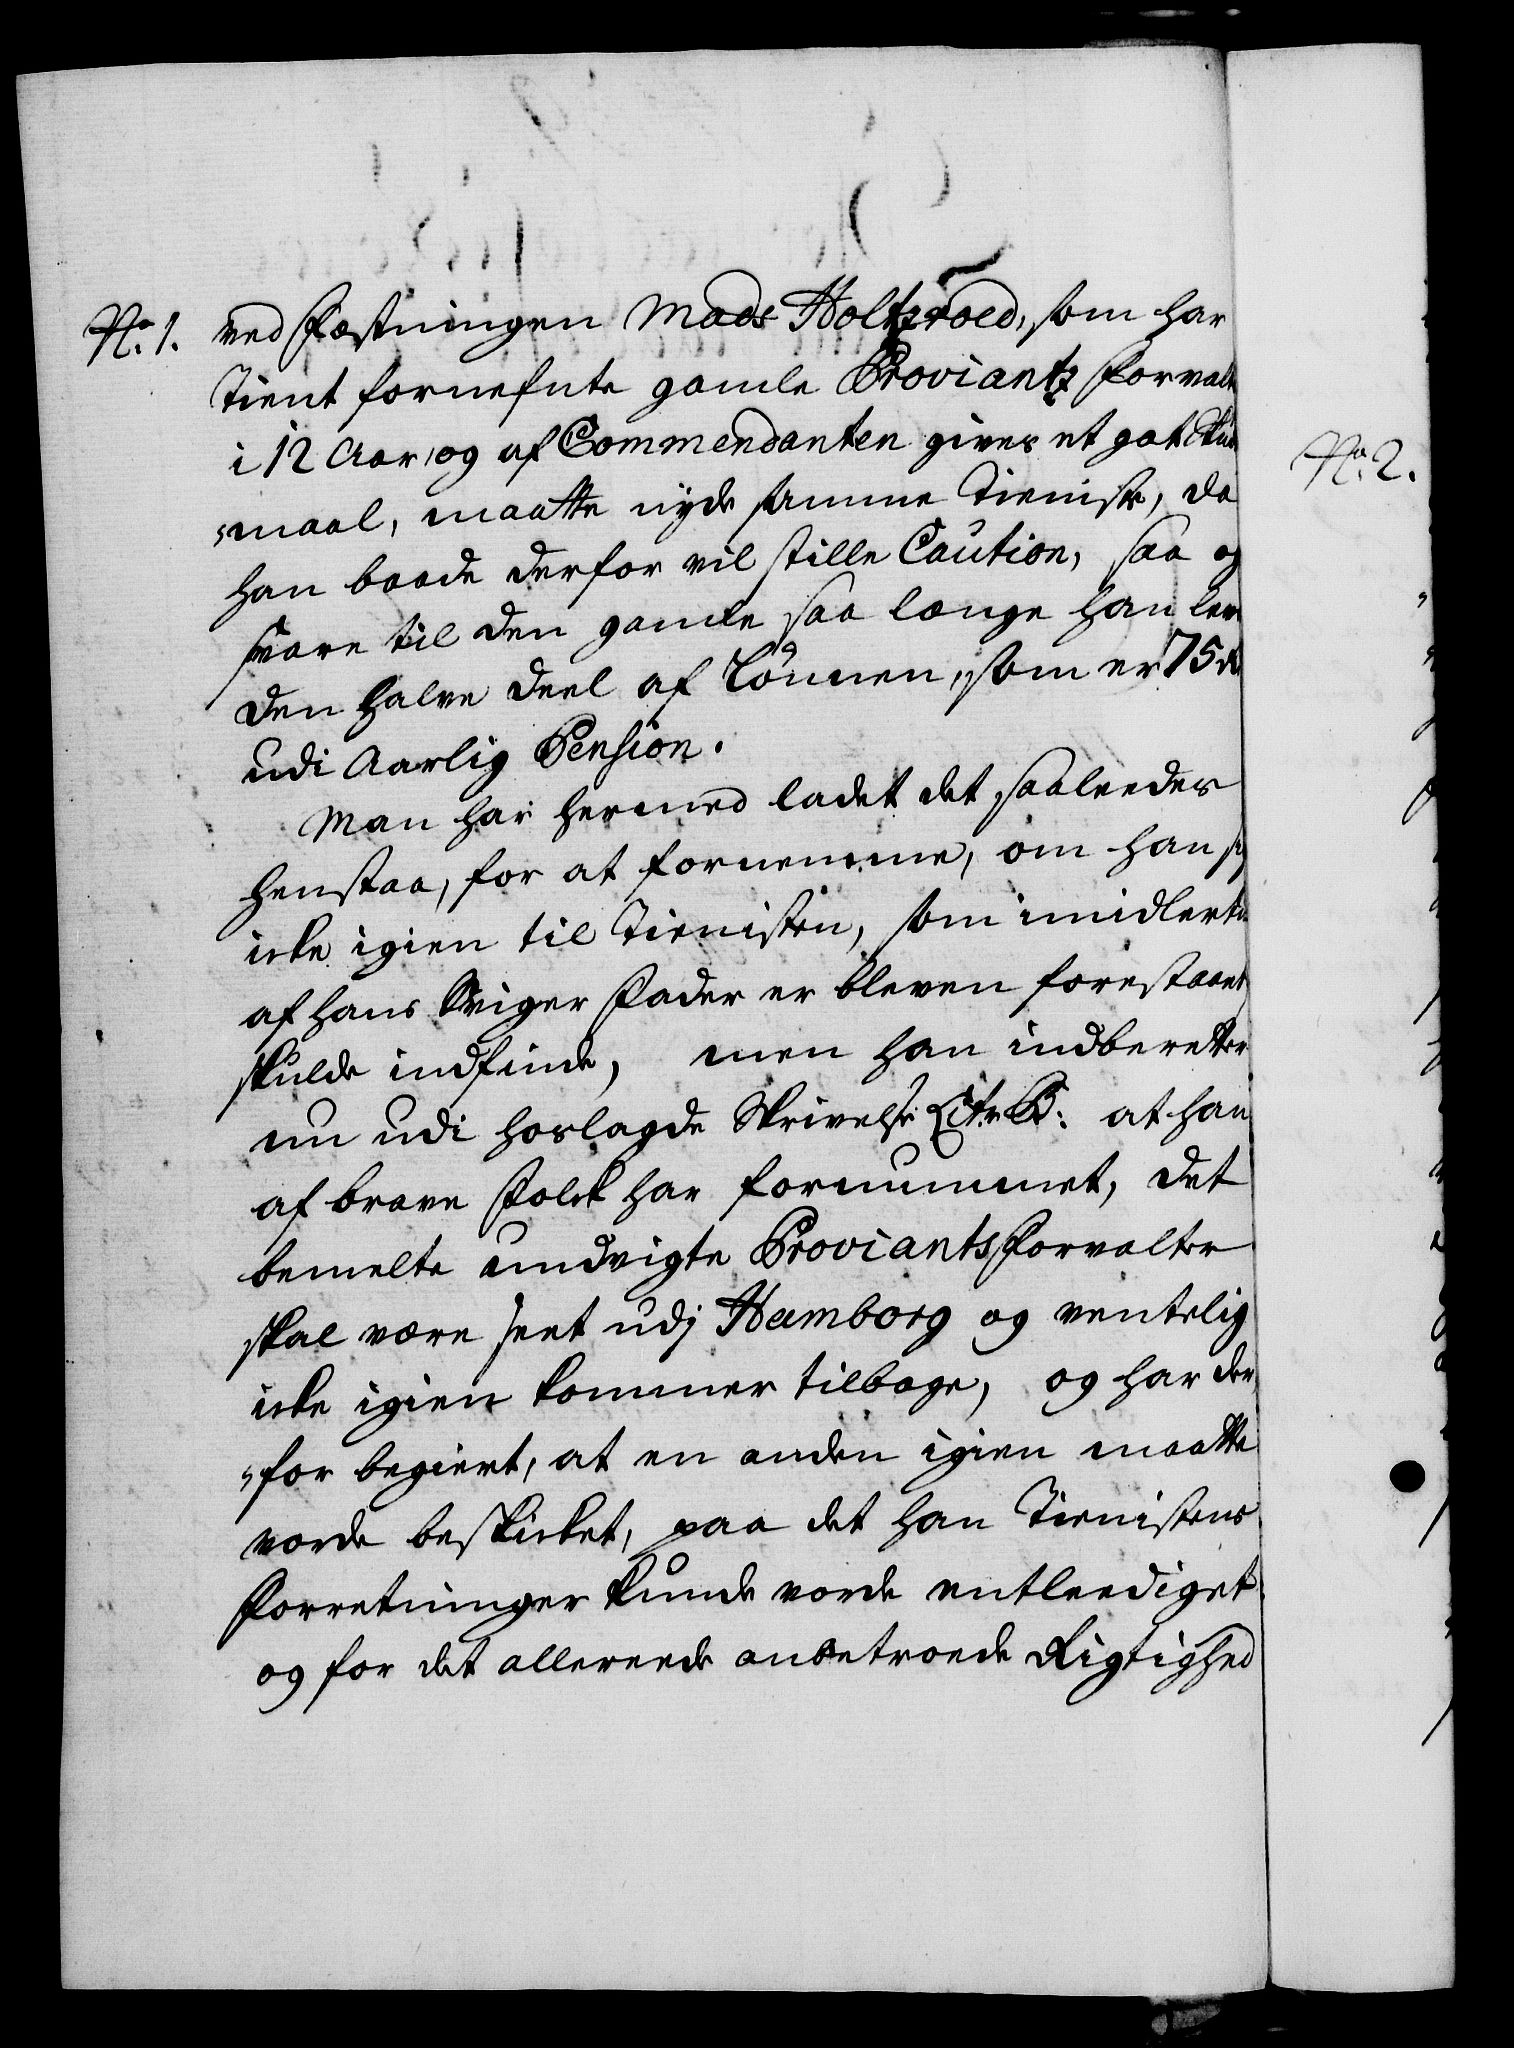 No. 1. ved Fæstningen Mads Holtzroed, som har
Tient fornefnte gamle Proviantz Forvalt
i 12 Aar, og af Commendanten gives et got Skuds
maal, maatte nyde samme Tieniste, da
han baade derfor vil stille Caution, saa og
svare til den gamle saa længe han lever
den halve Deel af Lönnen, som er 75 Rd
udi Aarlig Pension.
Man har hermed ladet det saaleedes
henstaa, for at fornemme, om han sig
icke igien til Tienisten, som imidlertid
af hans Sviger Fader er bleven forestaaet
skulde indfinde, men han indberetter
nu udi hoslagde Skrivelse Litr. B. at han
af brave Folck har fornummet, det
bemelte undvigte Proviants Forvalter
skal være seet udj Hamborg og ventelig
icke igien kommer tilbage, og har der
for begiert, at en anden igien maatte
vorde beskicket, paa det han Tienistens
Forretninger kunde vorde entleediget
og for det allereede anbetroede Rigtighed
No. 2.